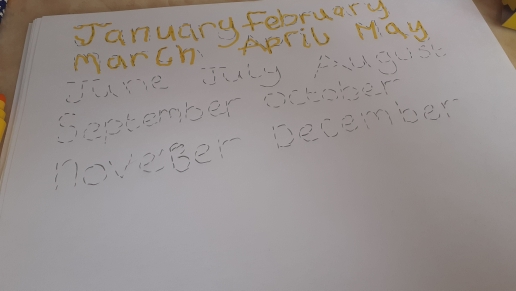 January February
March April May
June July August
September october
NoveBer December